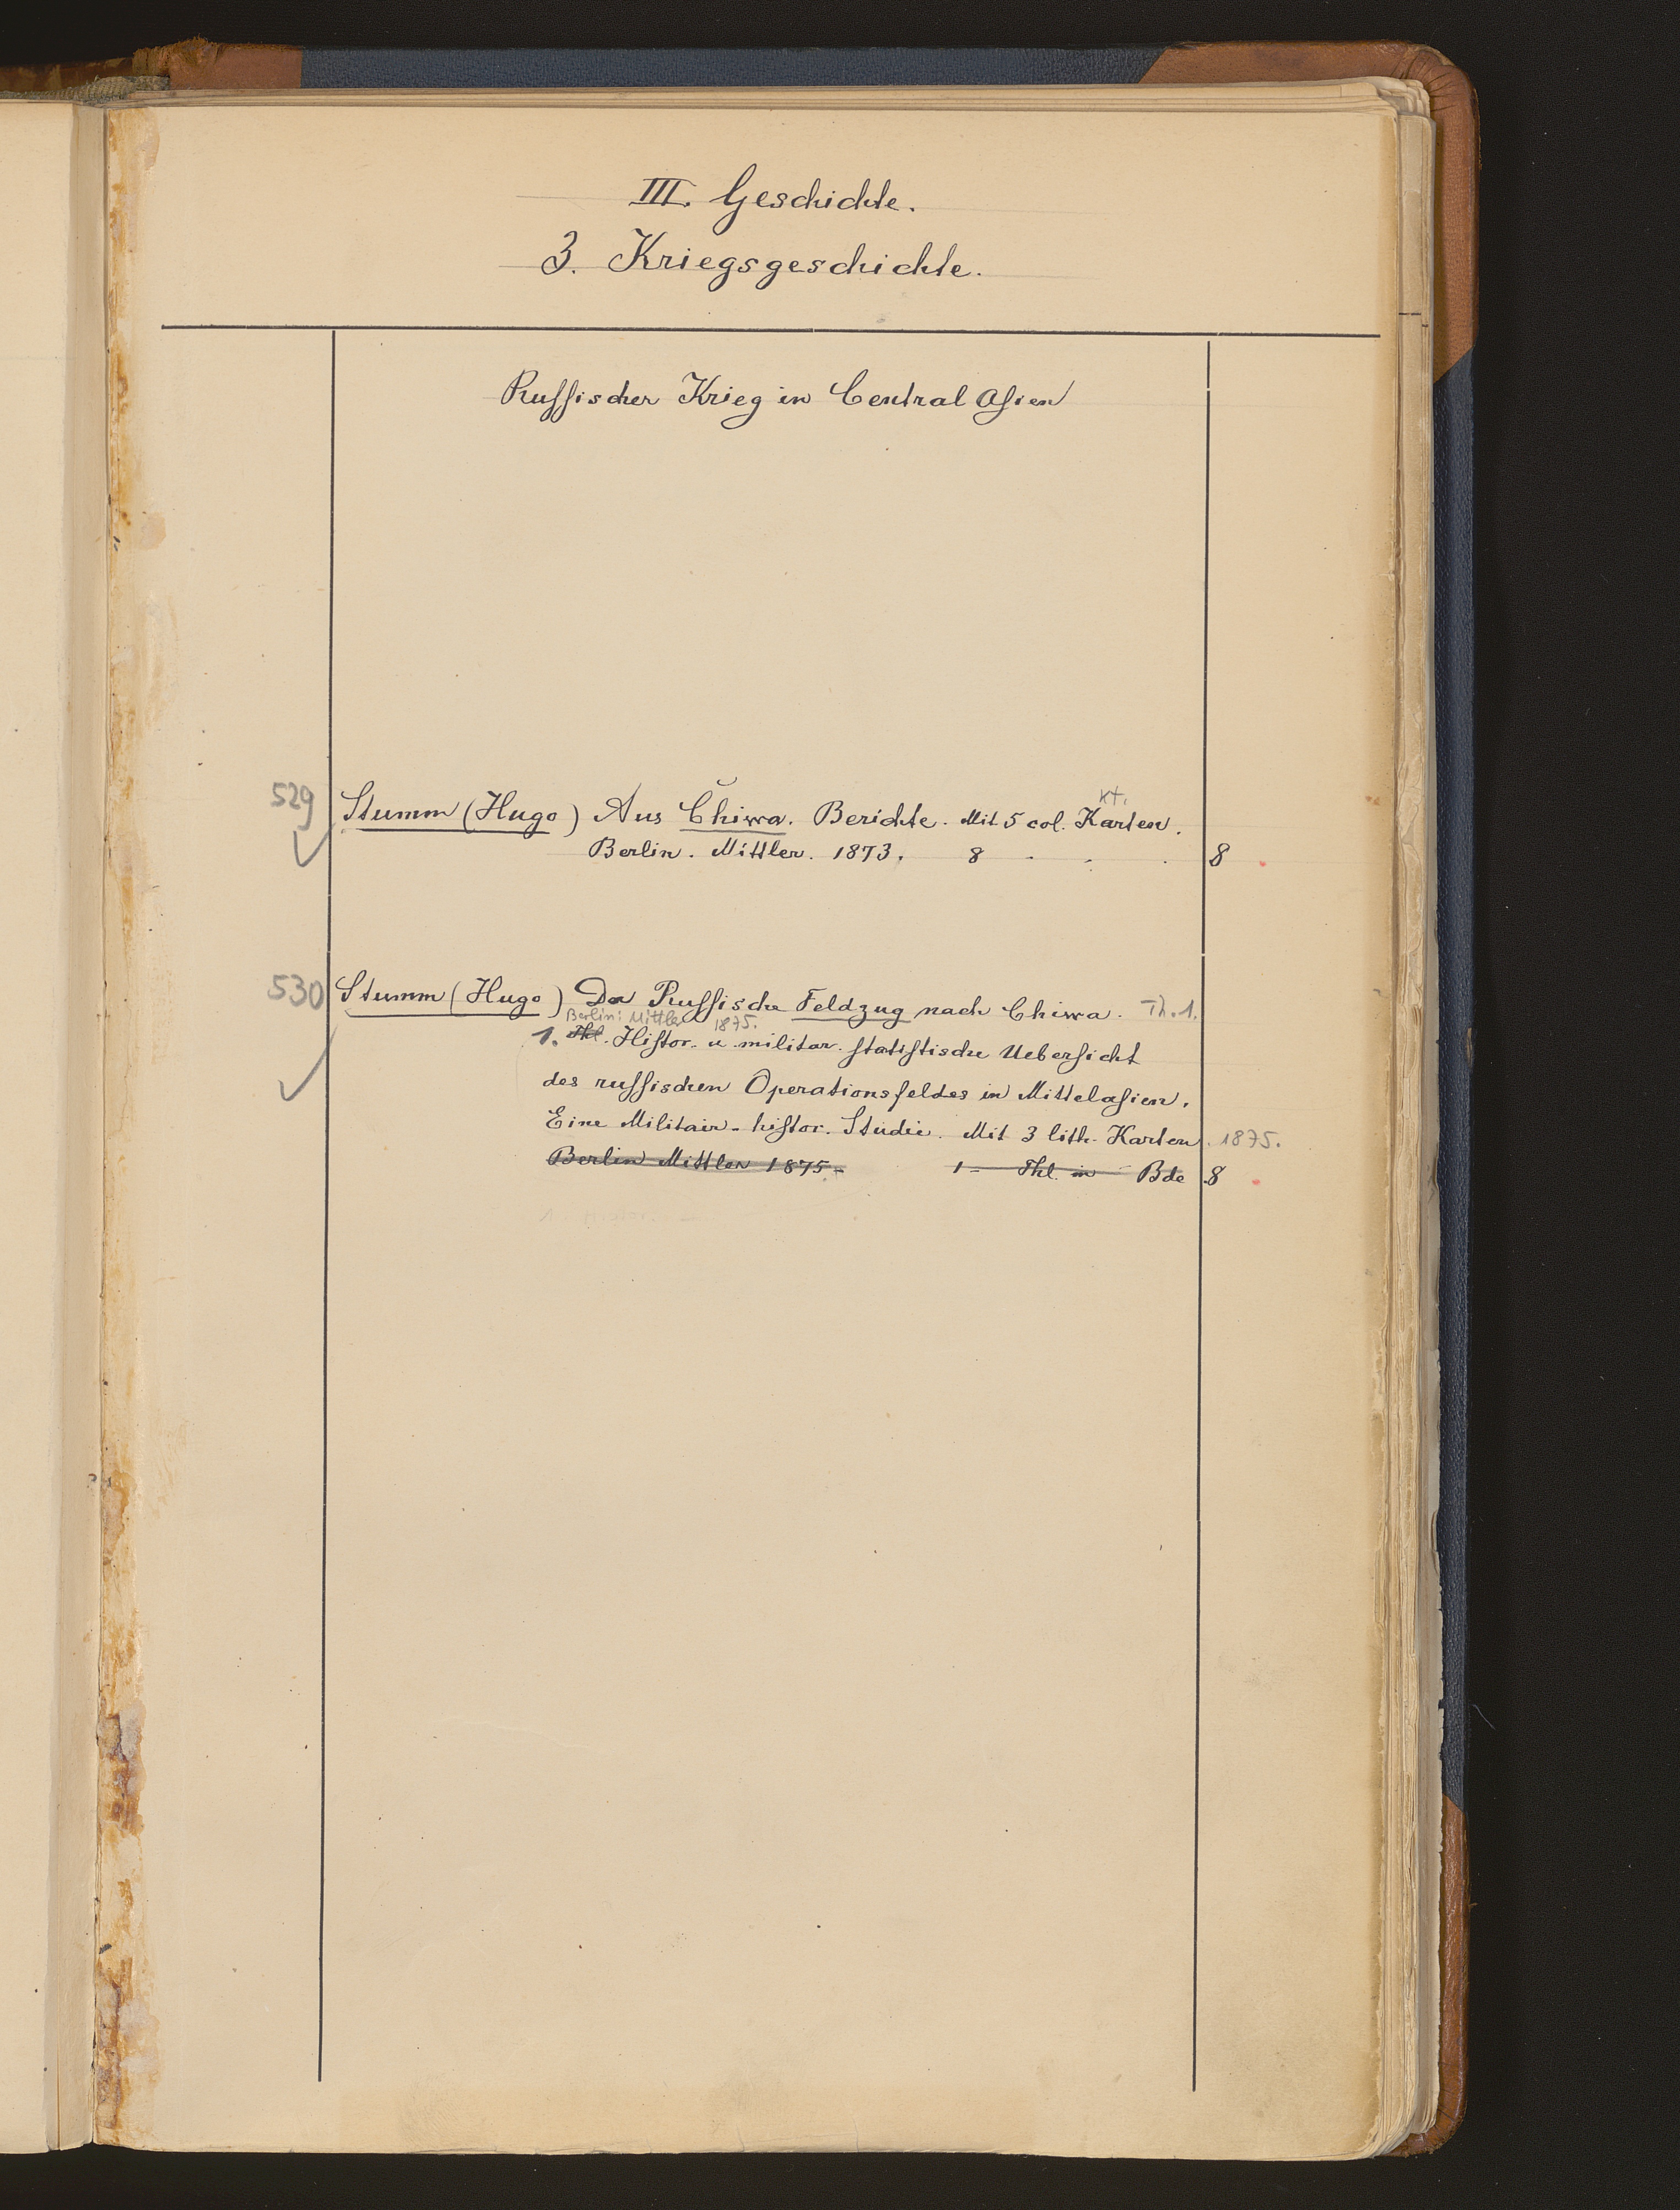 III. Geschichte.
3. Kriegsgeschichte.
Russischer Krieg in Central Asien
529 Stumm (Hugo) Aus Chiwa. Berichte. Mit 5 col. Karten.
Kt.
Berlin. Mittler. 1873. 8 . . . 8
530 Stumm (Hugo) Der Russische Feldzug nach Chiwa. Th. 1.
Berlin: Mittler 1875.
1. Thl. Histor. u. militär. statistische Uebersicht
des russischen Operationsfeldes in Mittelasien.
Eine Militair-histor. Studie. Mit 3 lith. Karten. 1875.
Berlin Mittler 1875 - 1 - Thl. in - Bde 8